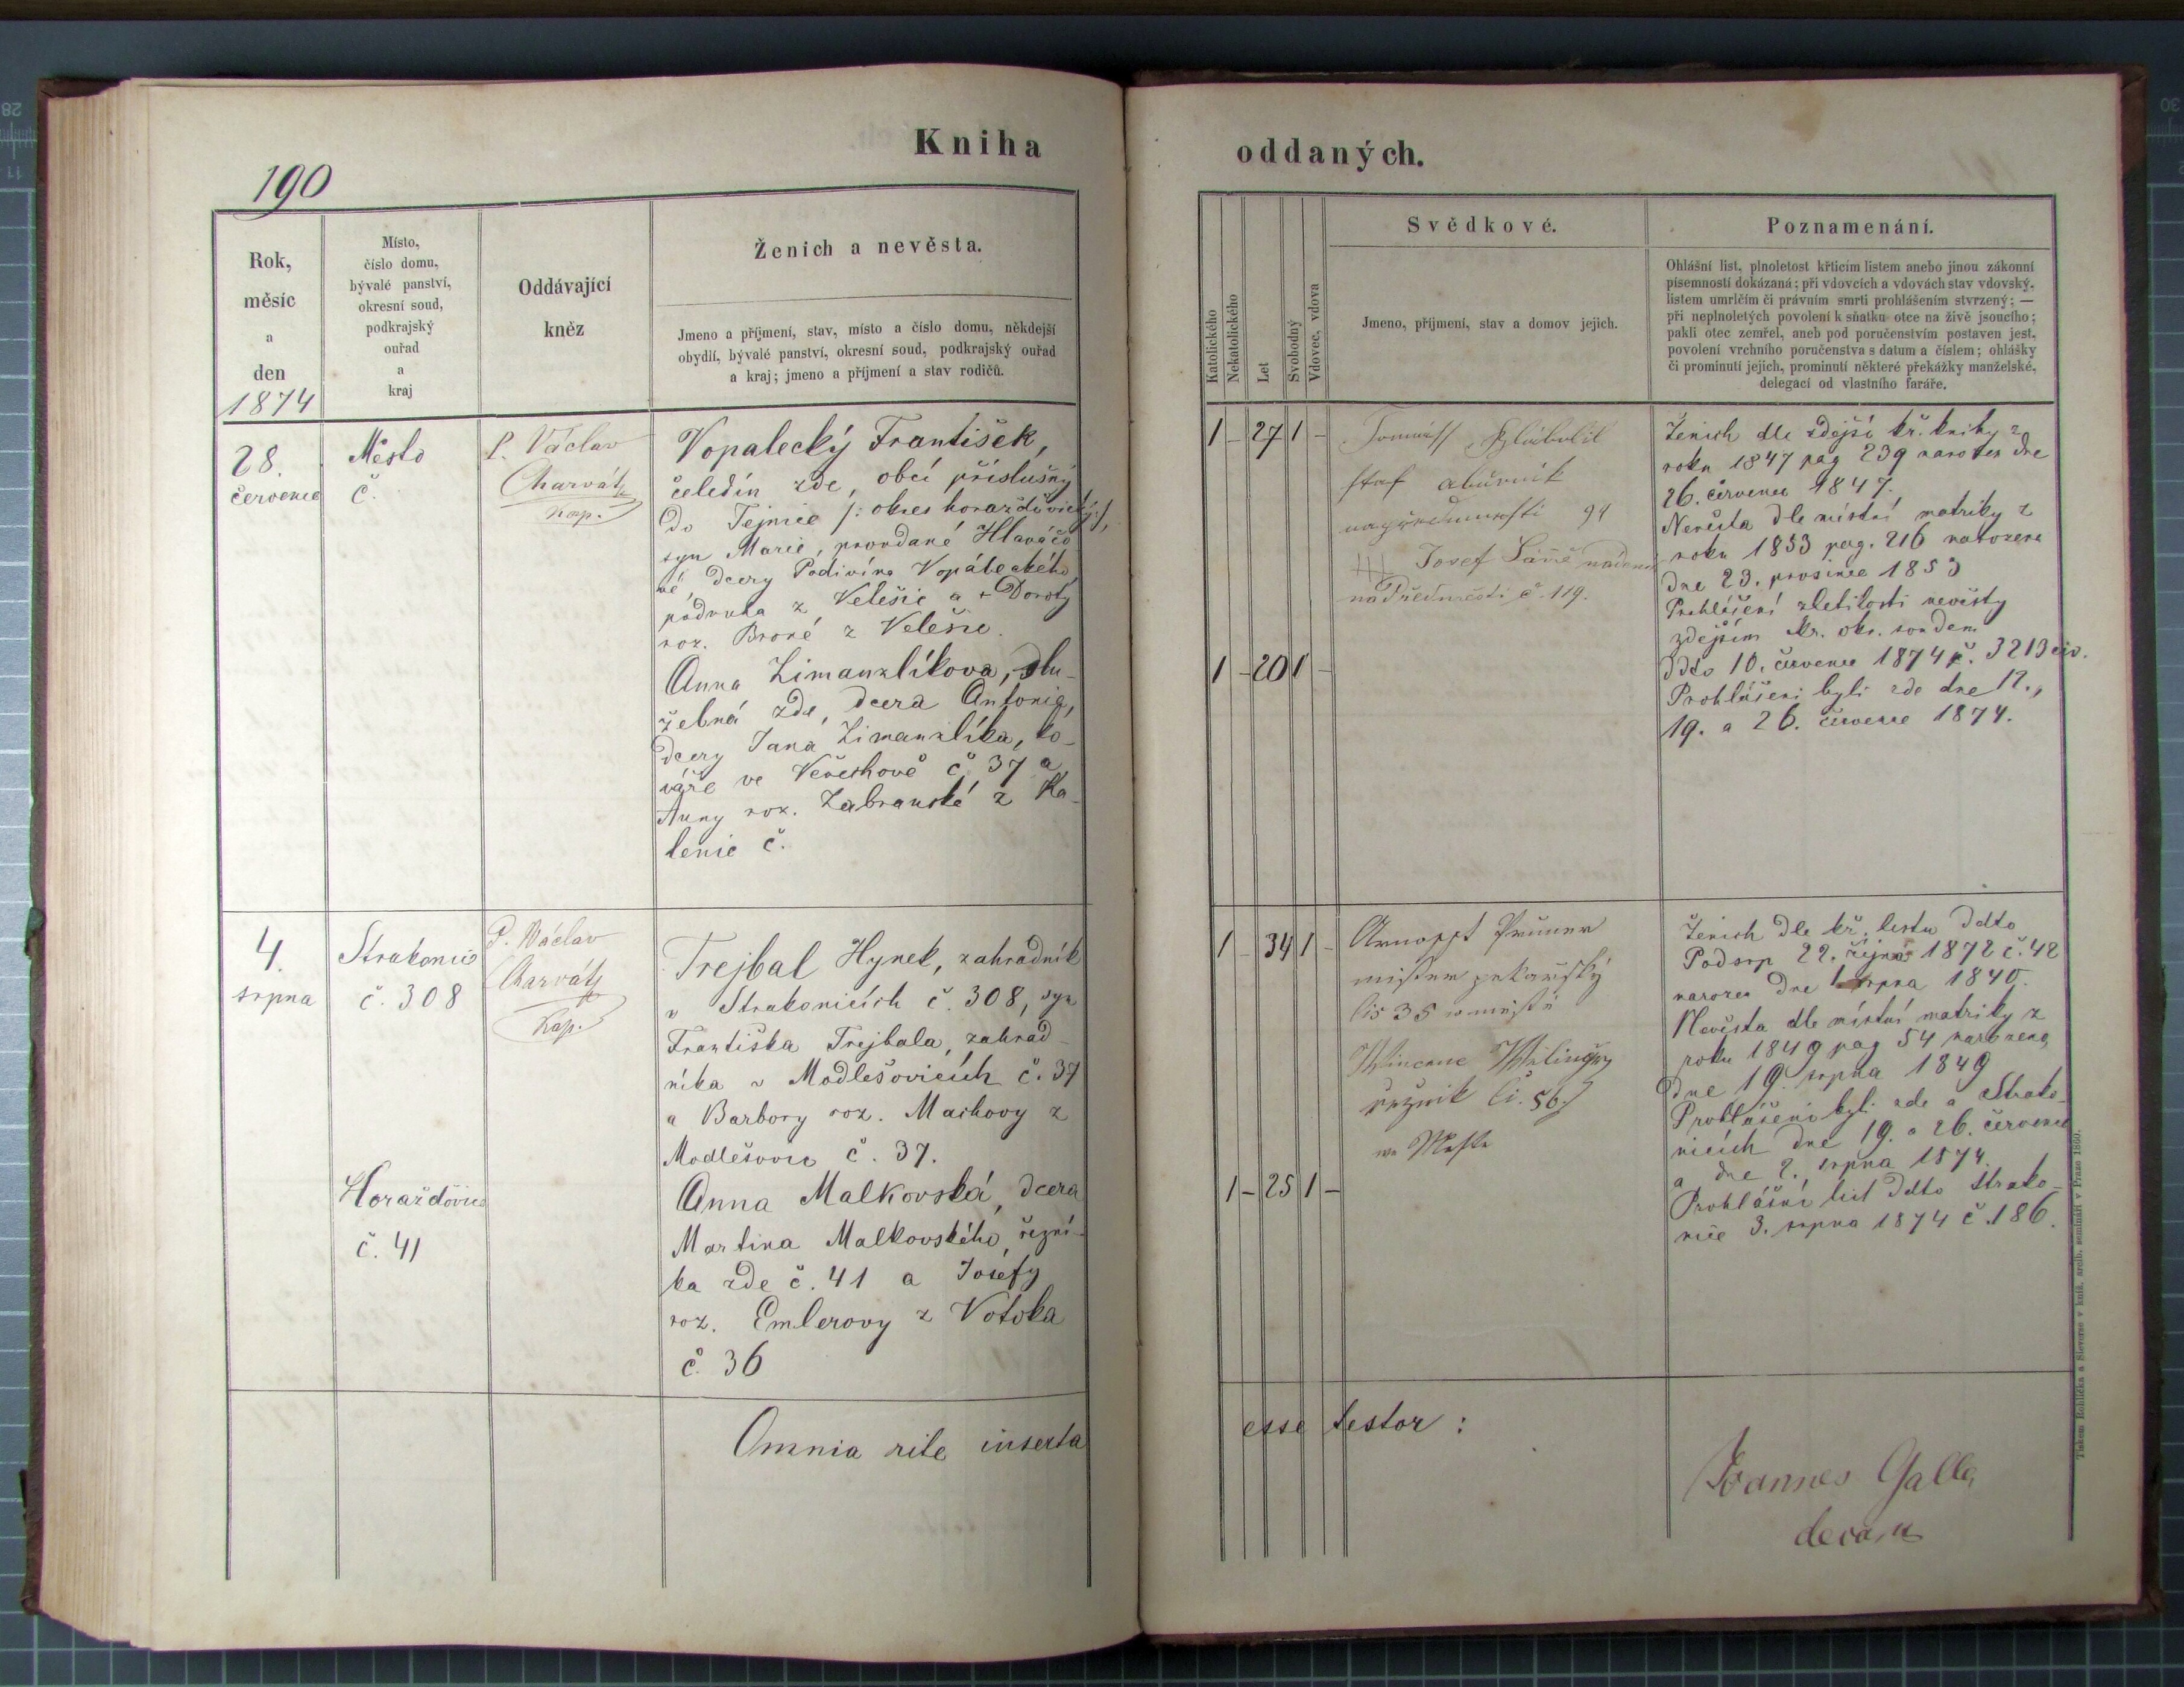 190
Kniha
oddaných.
Rok,
měsíc
a
den
1874
Místo,
číslo domu,
bývalé panství,
okresní soud,
podkrajský
ouřad
a
kraj
Oddávající
kněz
Ženich a nevěsta.
Jmeno a příjmení, stav, místo a číslo domu, někdejší
obydlí, bývalé panství, okresní soud, podkrajský ouřad
a kraj; jmeno a příjmení a stav rodičů.
Katolického
Nekatolického
Let
Svobodný
Vdovec, vdova
Svědkové.
Jmeno, příjmení, stav a domov jejich.
Poznamenání.
Ohlášní list, plnoletost křticím listem anebo jinou zákonní
písemností dokázaná; při vdovcích a vdovách stav vdovský,
listem umrlčím či právním smrti prohlášením stvrzený; —
při neplnoletých povolení k sňatku otce na živě jsoucího;
pakli otec zemřel, aneb pod poručenstvím postaven jest,
povolení vrchního poručenstva s datum a číslem; ohlášky
či prominutí jejich, prominutí některé překážky manželské,
delegací od vlastního faráře.
28.
července
Město
č.
P. Václav
Charvát
kap.
Vopalecký František,
čeledín zde, obcí příslušný
do Tejnice /: okres horažďovický :/,
syn Marie, provdané Hlaváčo-
vé, dcery Podivína Vopáleckého
podruha z Velešic a + Doroty
roz. Broné z Velešic.
Anna Zimanzlíkova, slu-
žebná zde, dcera Antonie,
dcery Jana Zimanzlíka, ko-
váře ve Veřechově č. 37 a
Anny roz. Zabranské z Ka-
lenic č.
1 - 27 1 -
1 - 20 1 -
94
Josef
na Předměstí č. 119.
Ženich dle zdejší kř. knihy z
roku 1847 pag 239 narozen dne
26. července 1847.
Nevěsta dle místní matriky z
roku 1853 pag. 216 narozena
dne 23. prosince 1853
Prohlášení zletilosti nevěsty
zdejším kr. okr. soudem
ddto 10. července 1874 č. 3213 civ.
Prohlášeni byli zde dne 12.,
19. a 26. července 1874.
4.
srpna
Strakonice
č. 308
P. Václav
Charvát
Kap.
Trejbal Hynek, zahradník
v Strakonicích č. 308, syn
Františka Trejbala, zahrad-
níka v Modlešovicích č. 37
a Barbory roz. Machovy z
Modlešovic č. 37.
Horažďovice
č. 41
Anna Malkovská, dcera
Martina Malkovského, řezní-
ka zde č. 41 a Josefy
roz. Emlerovy z Votoka
č. 36
1 - 34 1 -
1 - 25 1 -
mister pekařský
čís 35 w městě
Wincenc
řezník čí. 56
Ženich dle kř. listu ddto
Podsrp 22. října 1872 č. 42
narozen dne 1 srpna 1840.
Nevěsta dle místní matriky z
roku 1849 pag 54 narozena
dne 19. srpna 1849
Prohlášeni byli zde a Strako-
nicích dne 19. a 26. července
a dne 2. srpna 1874.
Prohlášní list ddto Strako-
nice 3. srpna 1874 č. 186.
Omnia rite inserta
esse testor :
Joannes Galla,
decan
Tiskem Rohlíčka a Sieverse v kníž. arcib. semináři v Praze 1860.